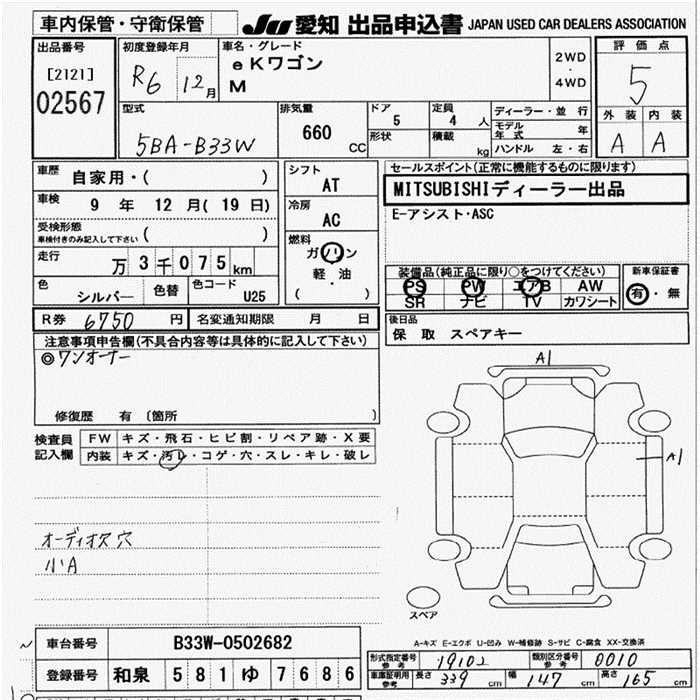 車内保管・守衛保管 JU 愛知 出品申込書 JAPAN USED CAR DEALERS ASSOCIATION
出品番号 初度登録年月 車名・グレード 評価点
[2121] R6 12月 eKワゴン 2WD 5
02567 M ・ 4WD
外装 内装
型式 排気量 ドア 定員 ディーラー・並行 A A
5BA-B33W 660 CC 5 4 人 モデル年式 年
形状 積載 kg ハンドル 左・右
車歴 自家用・( ) シフト セールスポイント(正常に機能するものに限ります)
AT MITSUBISHIディーラー出品
車検 9 年 12 月( 19 日) 冷房 E-アシスト・ASC
AC
受検形態
車検付きのみ記入して下さい ( ) 燃料
走行 万 3 千 0 7 5 km ガソリン 装備品(純正品に限り○をつけてください) 新車保証書
軽・油 PS PW エアB AW 有・無
色 シルバー 色替 色コード U25 ( ) SR ナビ TV カワシート
R券 6750 円 名変通知期限 月 日 後日品
保 取 スペアキー
注意事項申告欄(不具合内容等は具体的に記入して下さい)
◎ワンオーナー
A1
修復歴 有 〔箇所 〕
検査員 FW キズ・飛石・ヒビ割・リペア跡・X要
記入欄 内装 キズ・汚レ・コゲ・穴・スレ・キレ・破レ
A1
オーディオ穴
小A
スペア
車台番号 B33W-0502682
A-キズ E-エクボ U-凹み W-補修跡 S-サビ C-腐食 XX-交換済
登録番号 和泉 581 ゆ 7686
形式指定番号 参考 19102 類別区分番号 参考 0010
車庫証明用 参考 長さ 339 幅 147 高さ 165 cm cm cm